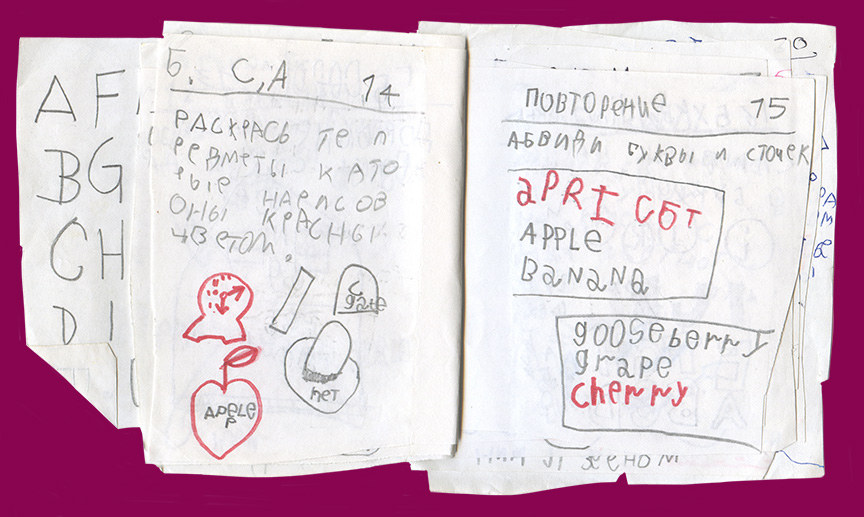 A F
B G
C H
D I
Б. С,А 14
РАСКРАСЬ ТЕ П
РЕДМЕТЫ КАТО
РЫЕ НАРИСОВ
ОНЫ КРАСНЫМ
ЦВЕТОМ.
C
gate
HET
APPLE
P
20
ПОВТОРЕНИЕ 15
АБВИДИ БУКВЫ И СТОЧЕК
APRICOT
APPLE
BANANA
gOOSeberry
grape
cherry